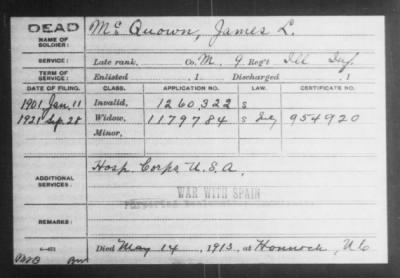 DEAD
NAME OF SOLDIER:
Mc Quown, James L.
SERVICE:
Late rank, Co. M, 9 Reg't Ill Inf.
TERM OF SERVICE:
Enlisted , 1 Discharged , 1
DATE OF FILING. CLASS. APPLICATION NO. LAW. CERTIFICATE NO.
1901 Jan. 11 Invalid, 1260,322 s
1921 Sep. 28 Widow, 1179784 s 954920
Minor,
ADDITIONAL SERVICES:
Hosp. Corps U.S.A.
WAR WITH SPAIN
REMARKS:
Died May 14, 1913, at